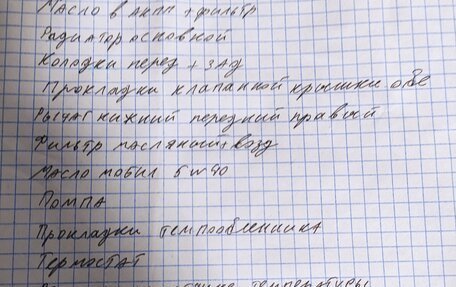 Масло в АКПП + фильтр
Радиатор основной
Колодки перед + зад
Прокладки клапанной крышки обе
Рычаг нижний передний правый
Фильтр масляный + возд
Масло мобил 5w40
Помпа
Прокладки теплообменника
Термостат
температуры